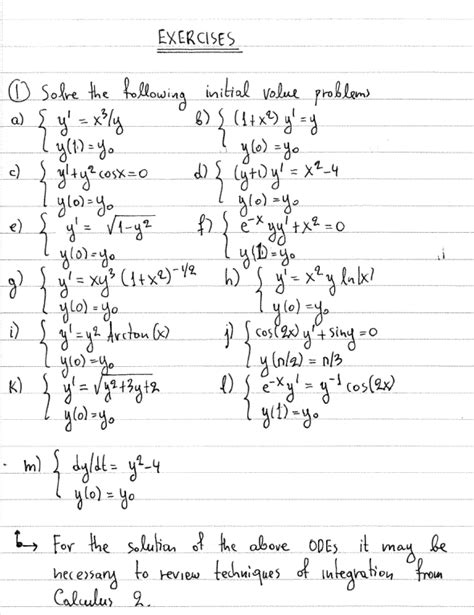 EXERCISES
① Solve the following initial value problems
a) { y' = x³/y   b) { (1+x²) y' = y
y(1) = y₀   y(0) = y₀
c) { y'+y² cosx = 0   d) { (y+1) y' = x²-4
y(0) = y₀   y(0) = y₀
e) { y' = √(1-y²)   f) { e^(-x) yy' + x² = 0
y(0) = y₀   y(1) = y₀
g) { y' = xy³ (1+x²)^(-1/2)   h) { y' = x² y ln|x|
y(0) = y₀   y(0) = y₀
i) { y' = y² Arctan(x)   j) { cos(2x) y' + siny = 0
y(0) = y₀   y(π/2) = π/3
k) { y' = √(y²+3y+2)   l) { e^(-x) y' = y^(-1) cos(2x)
y(0) = y₀   y(1) = y₀
m) { dy/dt = y²-4
y(0) = y₀
↳ For the solution of the above ODEs it may be
necessary to review techniques of integration from
Calculus 2.